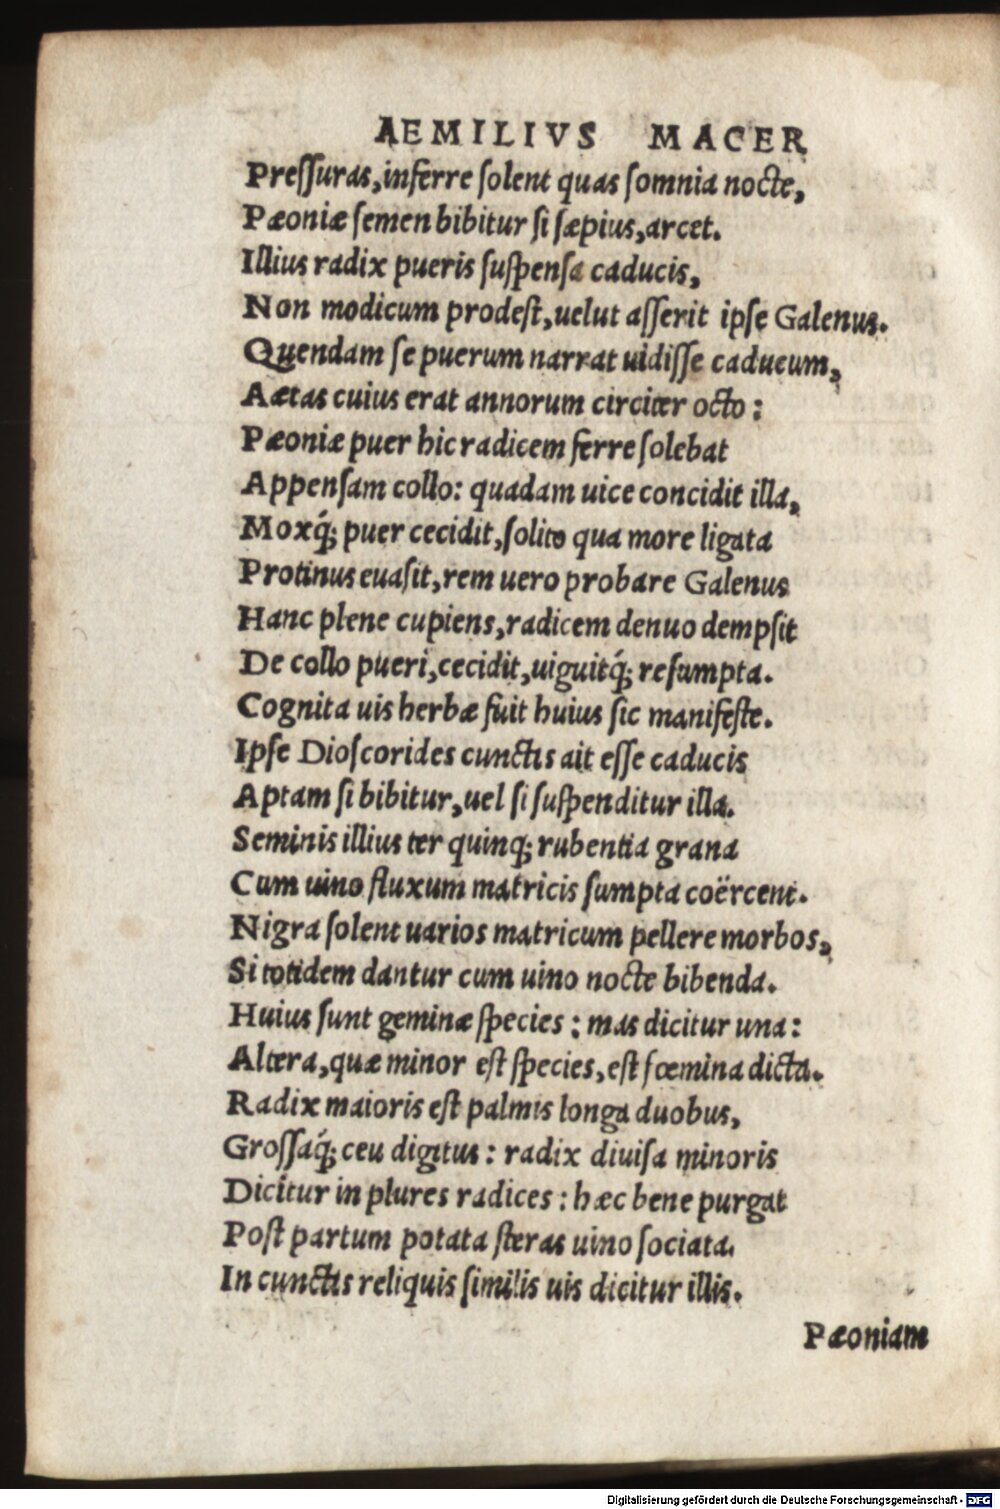 AEMILIVS MACER
Preſſuras, inferre ſolent quas ſomnia nocte,
Pæoniæ ſemen bibitur ſi ſæpius, arcet.
Illius radix pueris ſuſpenſa caducis,
Non modicum prodeſt, uelut aſſerit ipſe Galenus.
Quendam ſe puerum narrat uidiſſe caducum,
Aetas cuius erat annorum circiter octo:
Pæoniæ puer hic radicem ferre ſolebat
Appenſam collo: quadam uice concidit illa,
Moxq́; puer cecidit, ſolito qua more ligata
Protinus euaſit, rem uero probare Galenus
Hanc plene cupiens, radicem denuo dempſit
De collo pueri, cecidit, uiguitq́; reſumpta.
Cognita uis herbæ fuit huius ſic manifeſte.
Ipſe Dioſcorides cunctis ait eſſe caducis
Aptam ſi bibitur, uel ſi ſuſpenditur illa.
Seminis illius ter quinq; rubentia grana
Cum uino fluxum matricis ſumpta coërcent.
Nigra ſolent uarios matricum pellere morbos,
Si totidem dantur cum uino nocte bibenda.
Huius ſunt geminæ ſpecies: mas dicitur una:
Altera, quæ minor eſt ſpecies, eſt fœmina dicta.
Radix maioris eſt palmis longa duobus,
Groſſaq́; ceu digitus: radix diuiſa minoris
Dicitur in plures radices: hæc bene purgat
Poſt partum potata ſteras uino ſociata.
In cunctis reliquis ſimilis uis dicitur illis.
Pæoniam
Digitalisierung gefördert durch die Deutsche Forschungsgemeinschaft - DFG